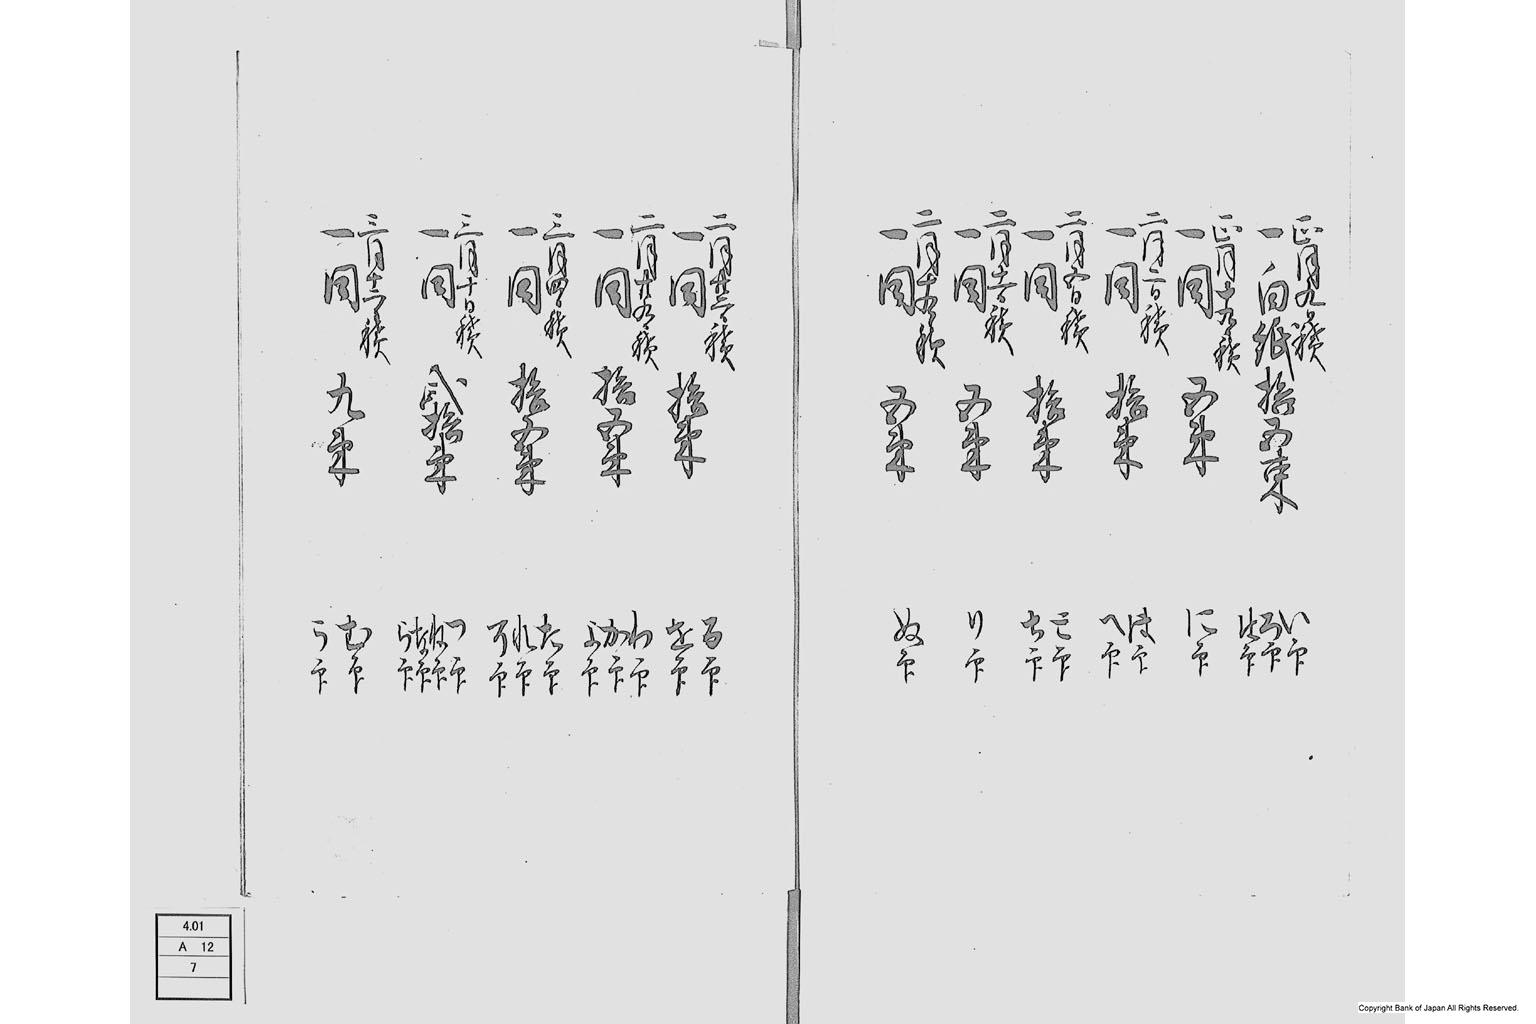 正月九日積
一白紙 拾五束 い印 ろ印 は印
正月十九日積
一同 五束 に印
二月二日積
一同 拾束 ほ印 へ印
二月五日積
一同 拾束 と印 ち印
二月十一日積
一同 五束 り印
二月十五日積
一同 五束 ぬ印
二月廿三日積
一同 拾束 る印 を印
二月廿九日積
一同 拾五束 わ印 か印 よ印
三月四日積
一同 拾五束 た印 れ印 そ印
三月十日積
一同 弐拾束 つ印 ね印 な印 ら印
三月十二日積
一同 九束 む印 う印
4.01
A 12
7
Copyright Bank of Japan All Rights Reserved.